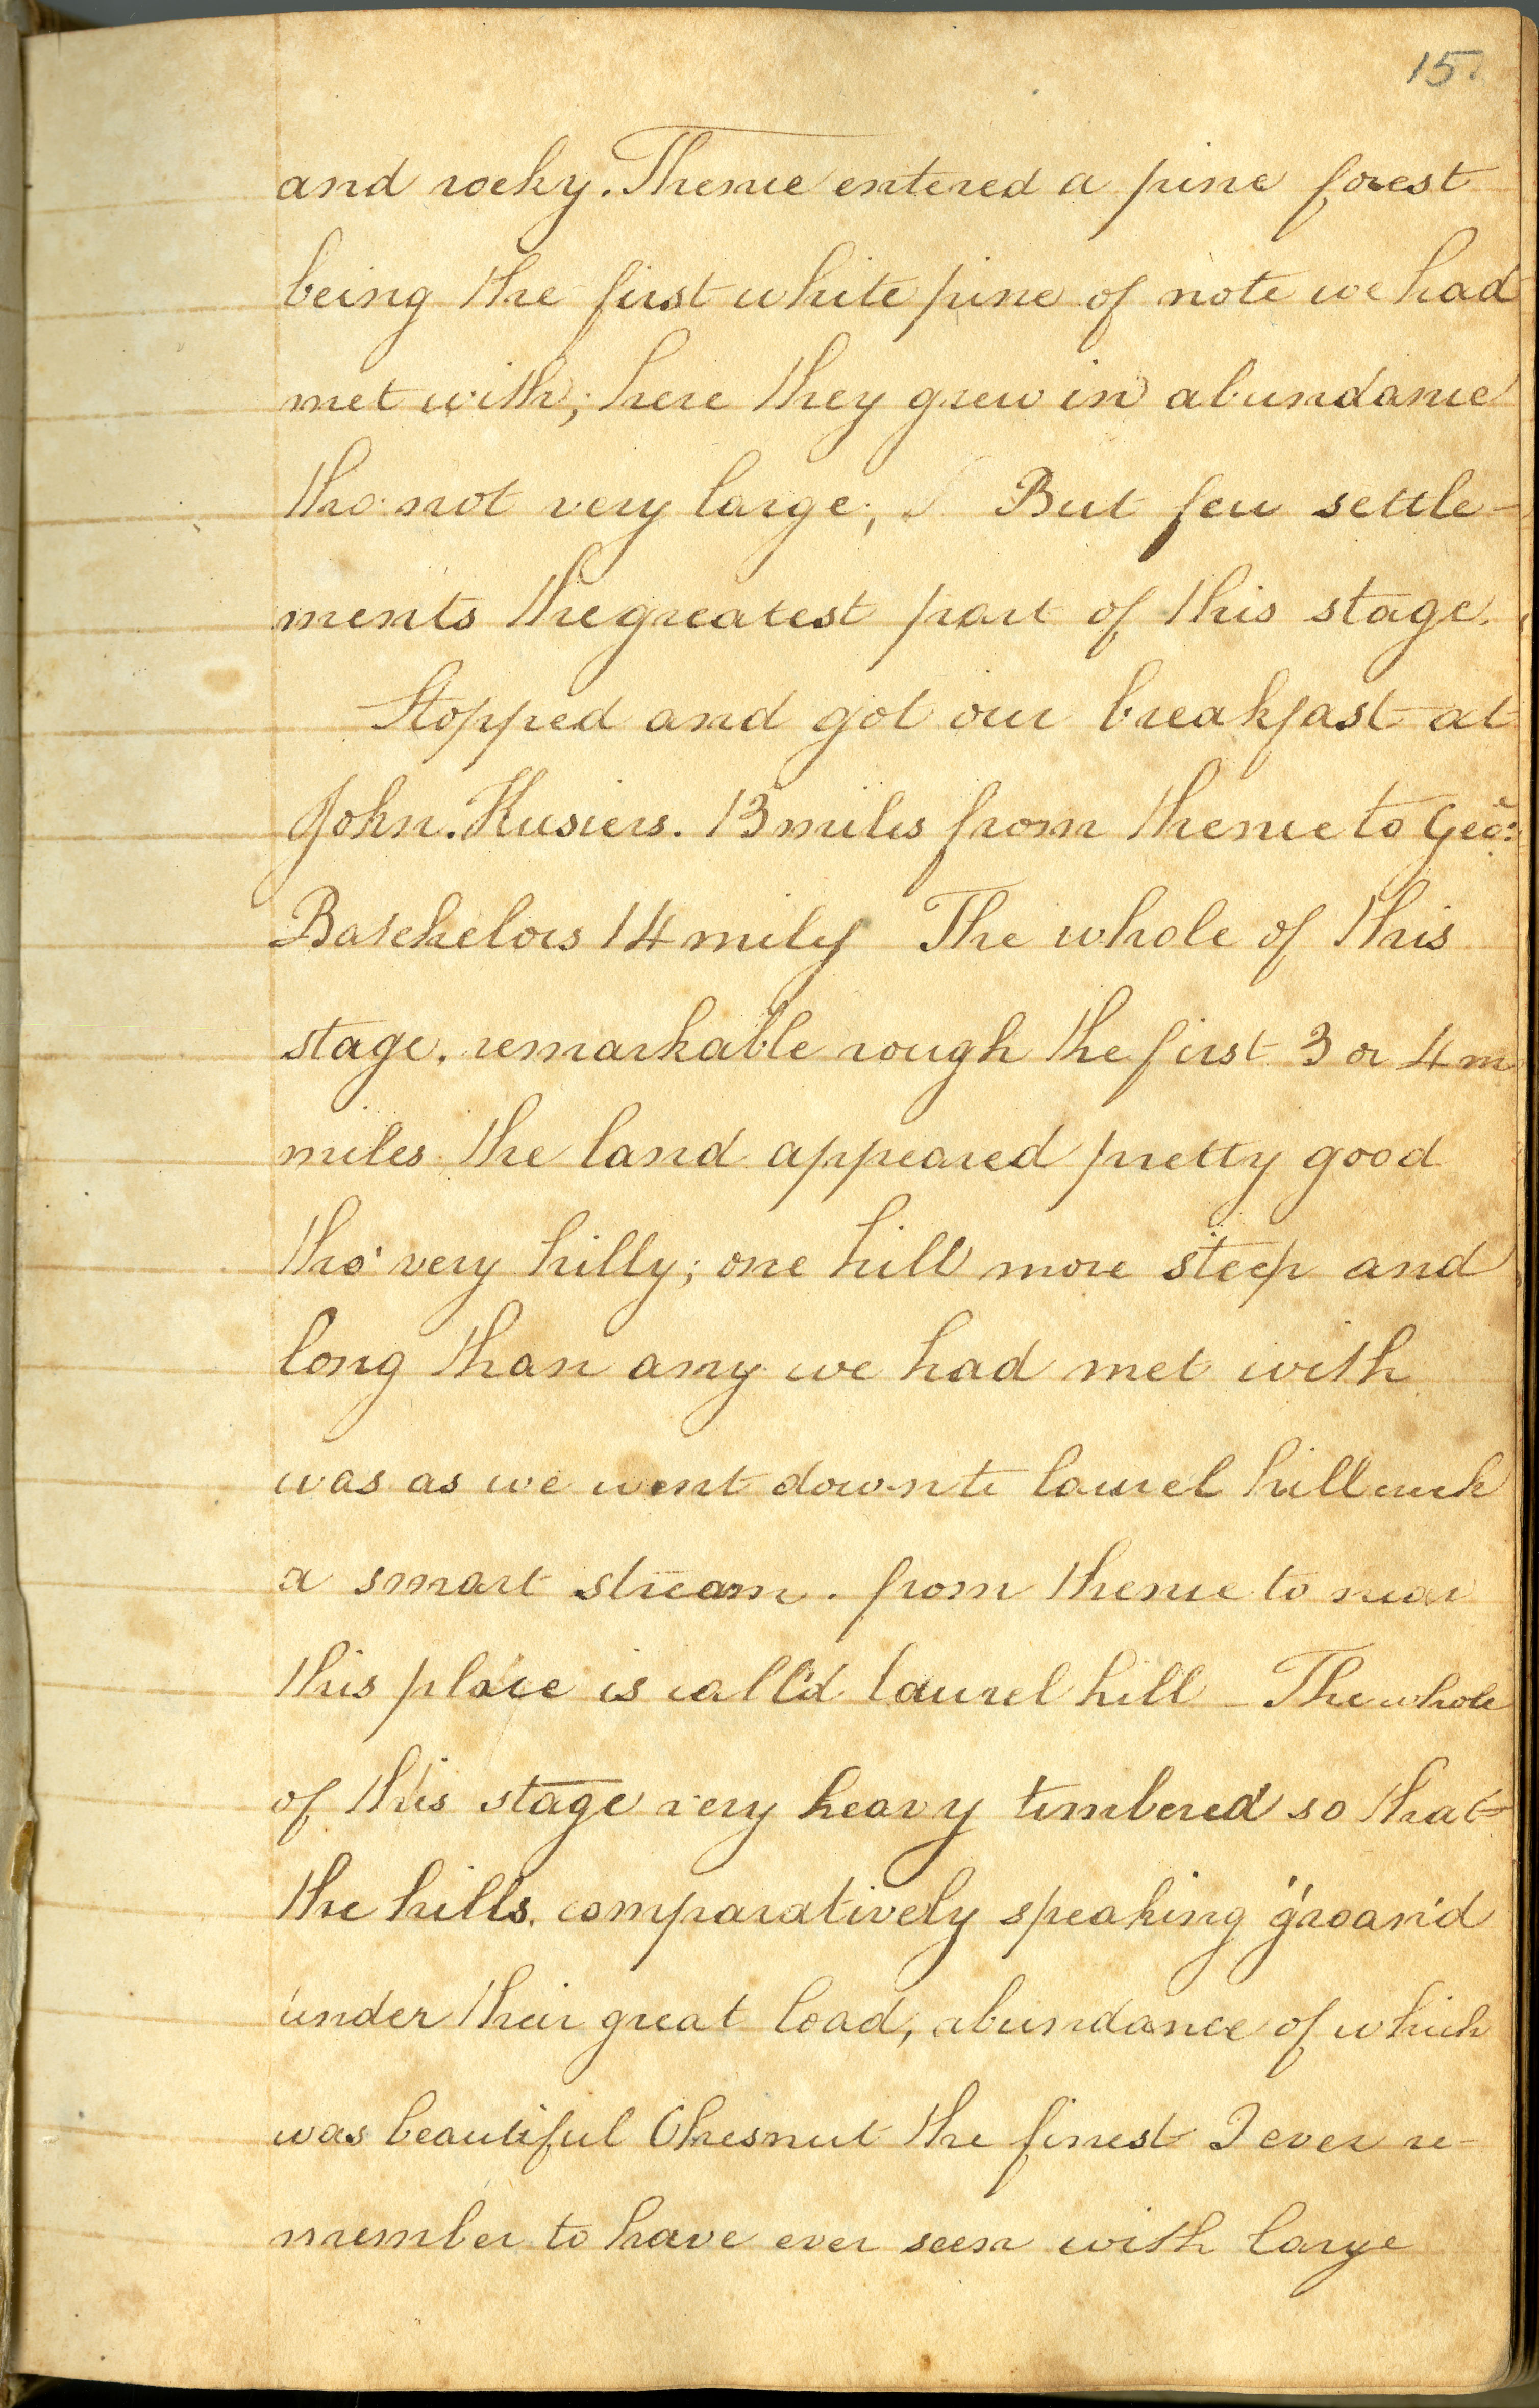 15.
and rocky. Thence entered a pine forest
being the first white pine of note we had
met with; here they grew in abundance
tho' not very large; But few settle-
ments the greatest part of this stage.
Stopped and got our breakfast at
John. Kusiers. 13 miles from thence to Geo:
Batchelors 14 miles The whole of this
stage. remarkable rough the first 3 or 4 m
miles the land appeared pretty good
tho' very hilly; one hill more steep and
long than any we had met with
was as we went down to laurel hill creek
a smart stream. from thence to near
this place is call'd laurel hill - The whole
of this stage very heavy timbered so that
the hills. comparatively speaking "groan'd
under their great load, abundance of which
was beautiful Chesnut the finest I ever re-
member to have ever seen with large